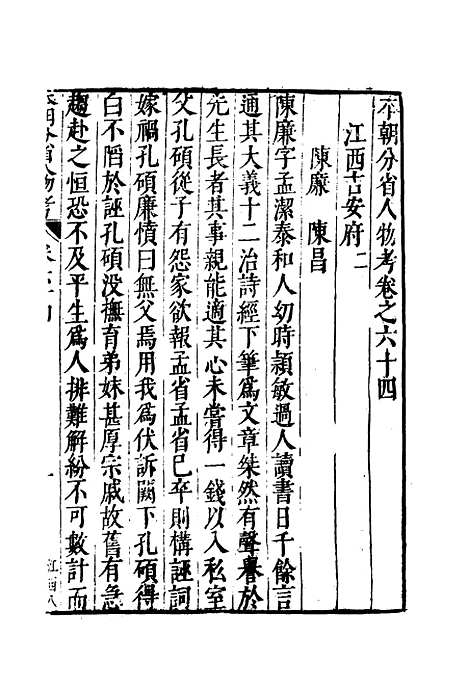 本朝分省人物考卷之六十四
江西吉安府二
陳廉　陳昌
陳廉字孟潔泰和人幼時頴敏過人讀書日千餘言
通其大義十二治詩經下筆爲文章桀然有聲譽於
先生長者其事親能適其心未嘗得一錢以入私室
父孔碩從子有怨家欲報孟省孟省已卒則構誣詞
嫁禍孔碩廉憤曰無父焉用我爲伏訴闕下孔碩得
白不䧟於誣孔碩没撫育弟妹甚厚宗戚故舊有急
趨赴之恒恐不及平生爲人排難解紛不可數計而